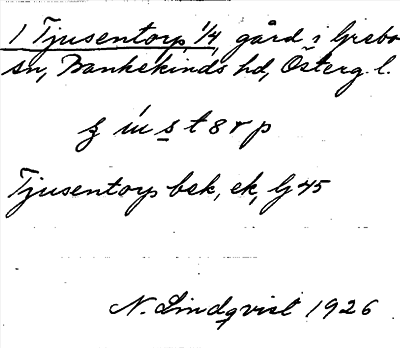 1 Tjusentorp 1/4, gård i Grebo
sn, Bankekinds hd, Österg. l.
Tjusentorps bsk, ek, lj 45
N. Lindqvist 1926